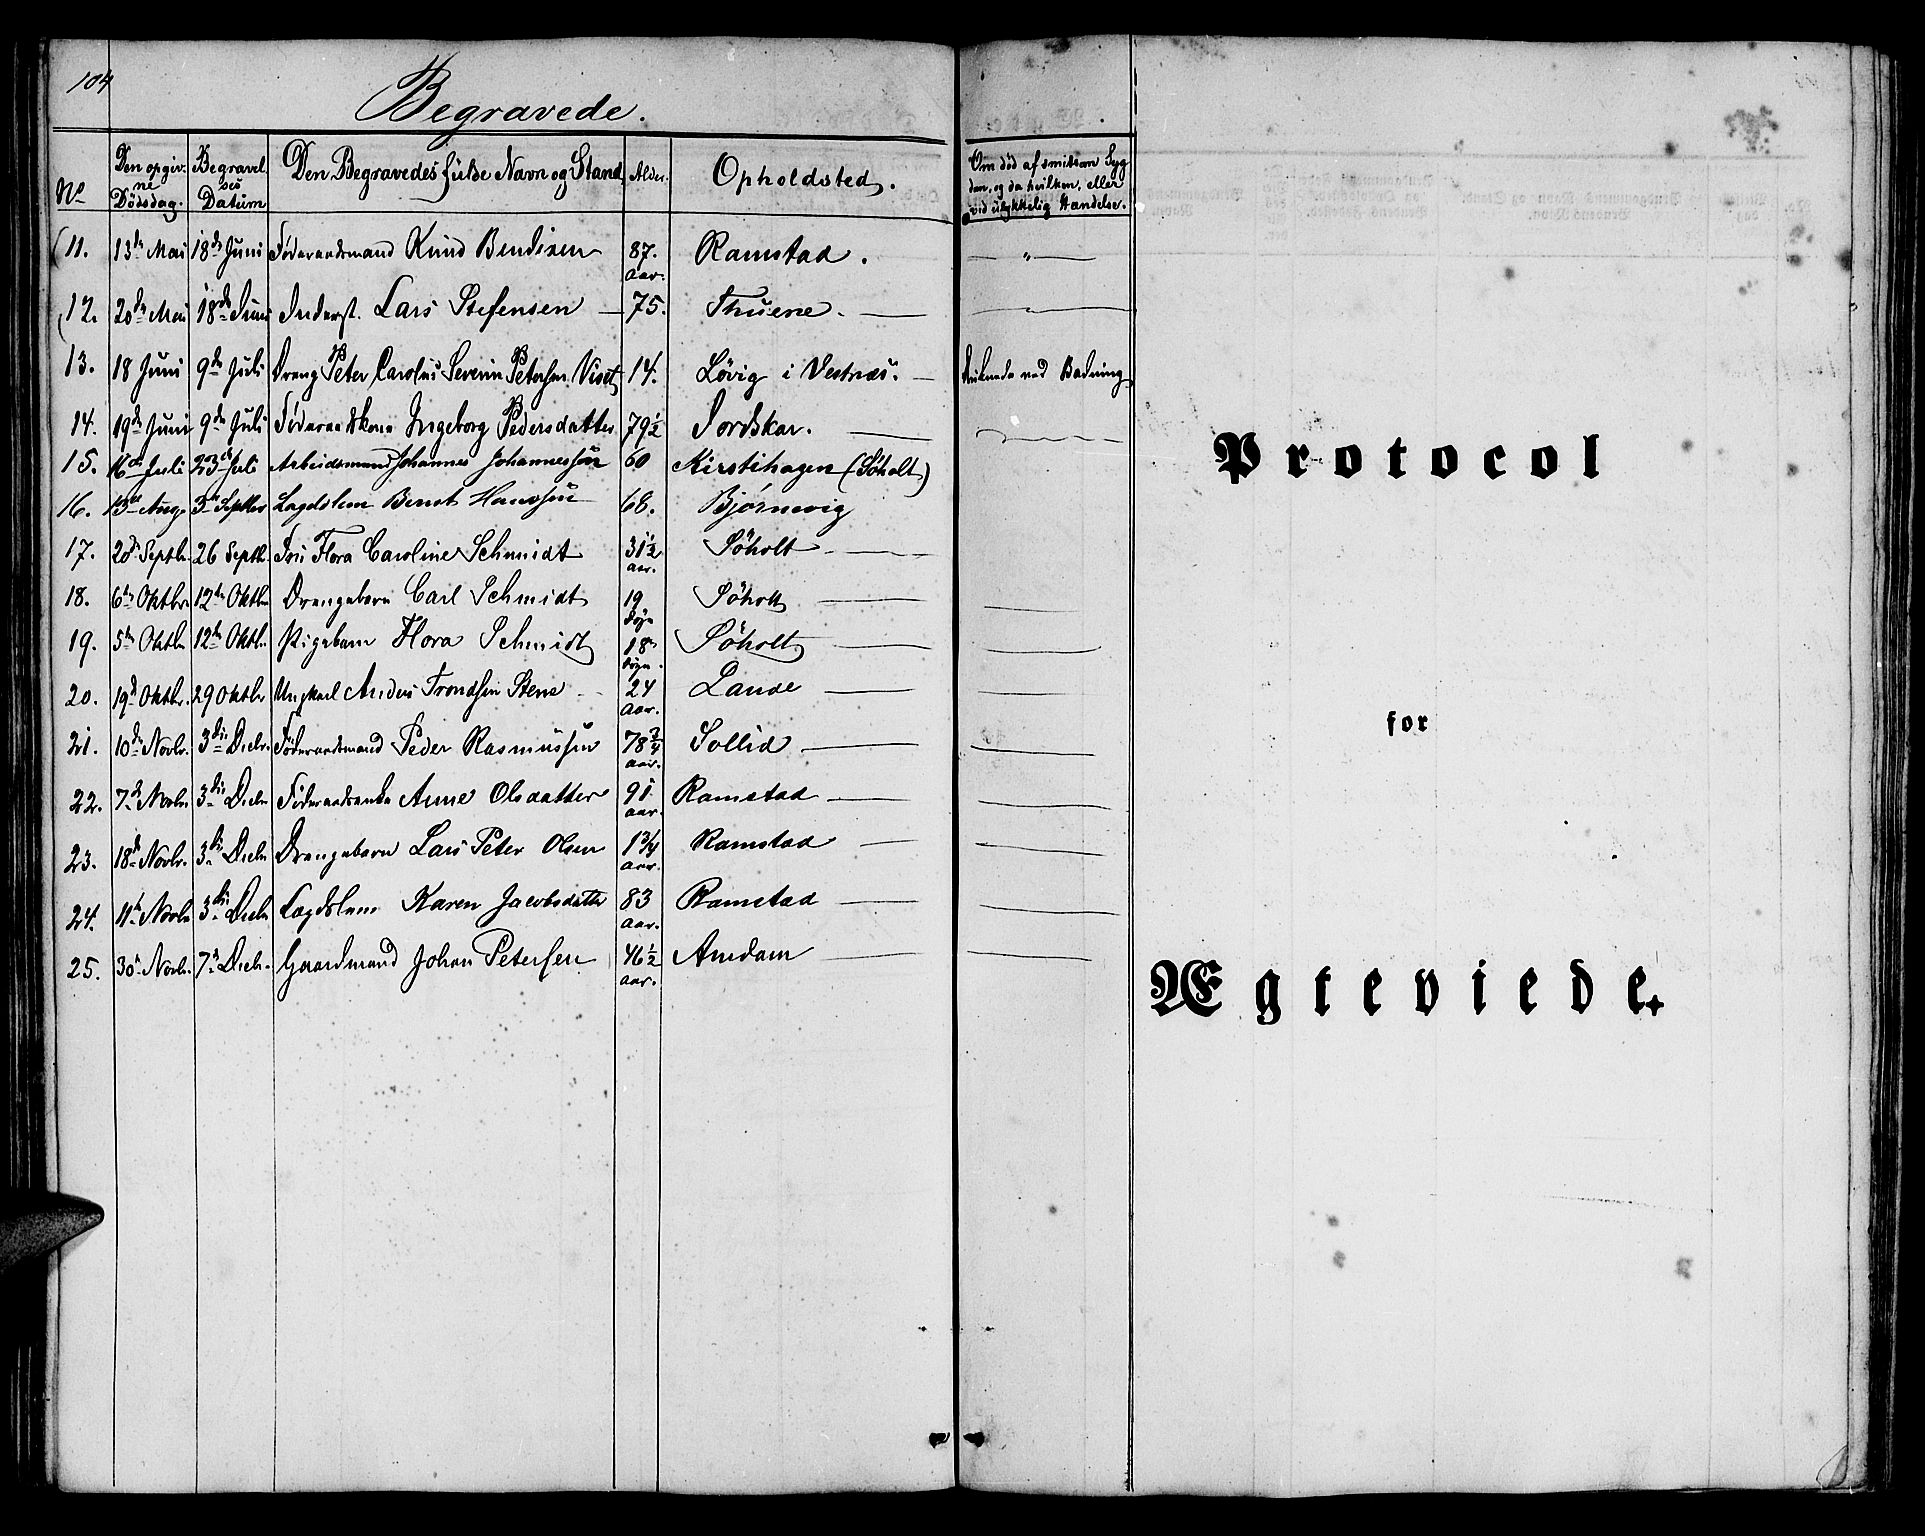 104
Begravede.
No Den opgivne Dödsdag. Begravelses Datum Den Begravedes fulde Navn og Stand Alder. Opholdsted. Om död af smitsom Sygdom, og da hvilken, eller ved ulykkelig Hændelse.
11. 13de Mai 18de Juni Föderaadsmand Knud Bendixen 87. Aar. Ramstad. — " —
12. 20de Mai 18de Juni Inderst. Lars Stefensen — 75. Thuene. —
13. 18 Juni 9de Juli Dreng Peter Carolus Severin Petersen Viset 14. Lövig i Vestnæs. — Druknede ved Badning
14. 19de Juni 9de Juli Föderaadskone Ingeborg Pedersdatter 79½ Jordskar. —
15. 16de Juli 23de Juli Arbeidsmand Johannes Johannessen 60 Kirstihagen (Söholt)
16. 13de Aug 3de Septber Lægdslem Bernt Hanssen 68. Bjørnevig
17. 20de Septbr. 26 Septb. Fru Flora Caroline Schmidt 31½ aar. Söholt —
18. 6te Oktbr. 12te Oktbr Drengebarn Carl Schmidt 19 Døgn Söholt —
19. 5te Oktbr 12te Oktbr. Pigebarn Flora Schmidt 18 Døgn. Söholt —
20. 19de Oktbr. 29 Oktbr Ungkarl Anders Trondsen Stene 24 Aar. Lande —
21. 10de Novbr. 3die Decbr. Föderaadsmand Peder Rasmussen 78¾ aar. Sollid —
22. 7de Novbr 3die Decbr Föderaadsenke Anne Olsdatter 91 aar. Ramstad —
23. 18de Novbr. 3die Decbr Drengebarn Lars Peter Olsen 1¾ aar. Ramstad —
24. 11te Novbr 3die Decbr Lægdslem Karen Jacobsdatter 83 aar. Ramstad —
25. 30te Novbr. 7de Decbr. Gaardmand Johan Petersen 46½ aar. Amdam —
Protocol
for
Ægteviede.